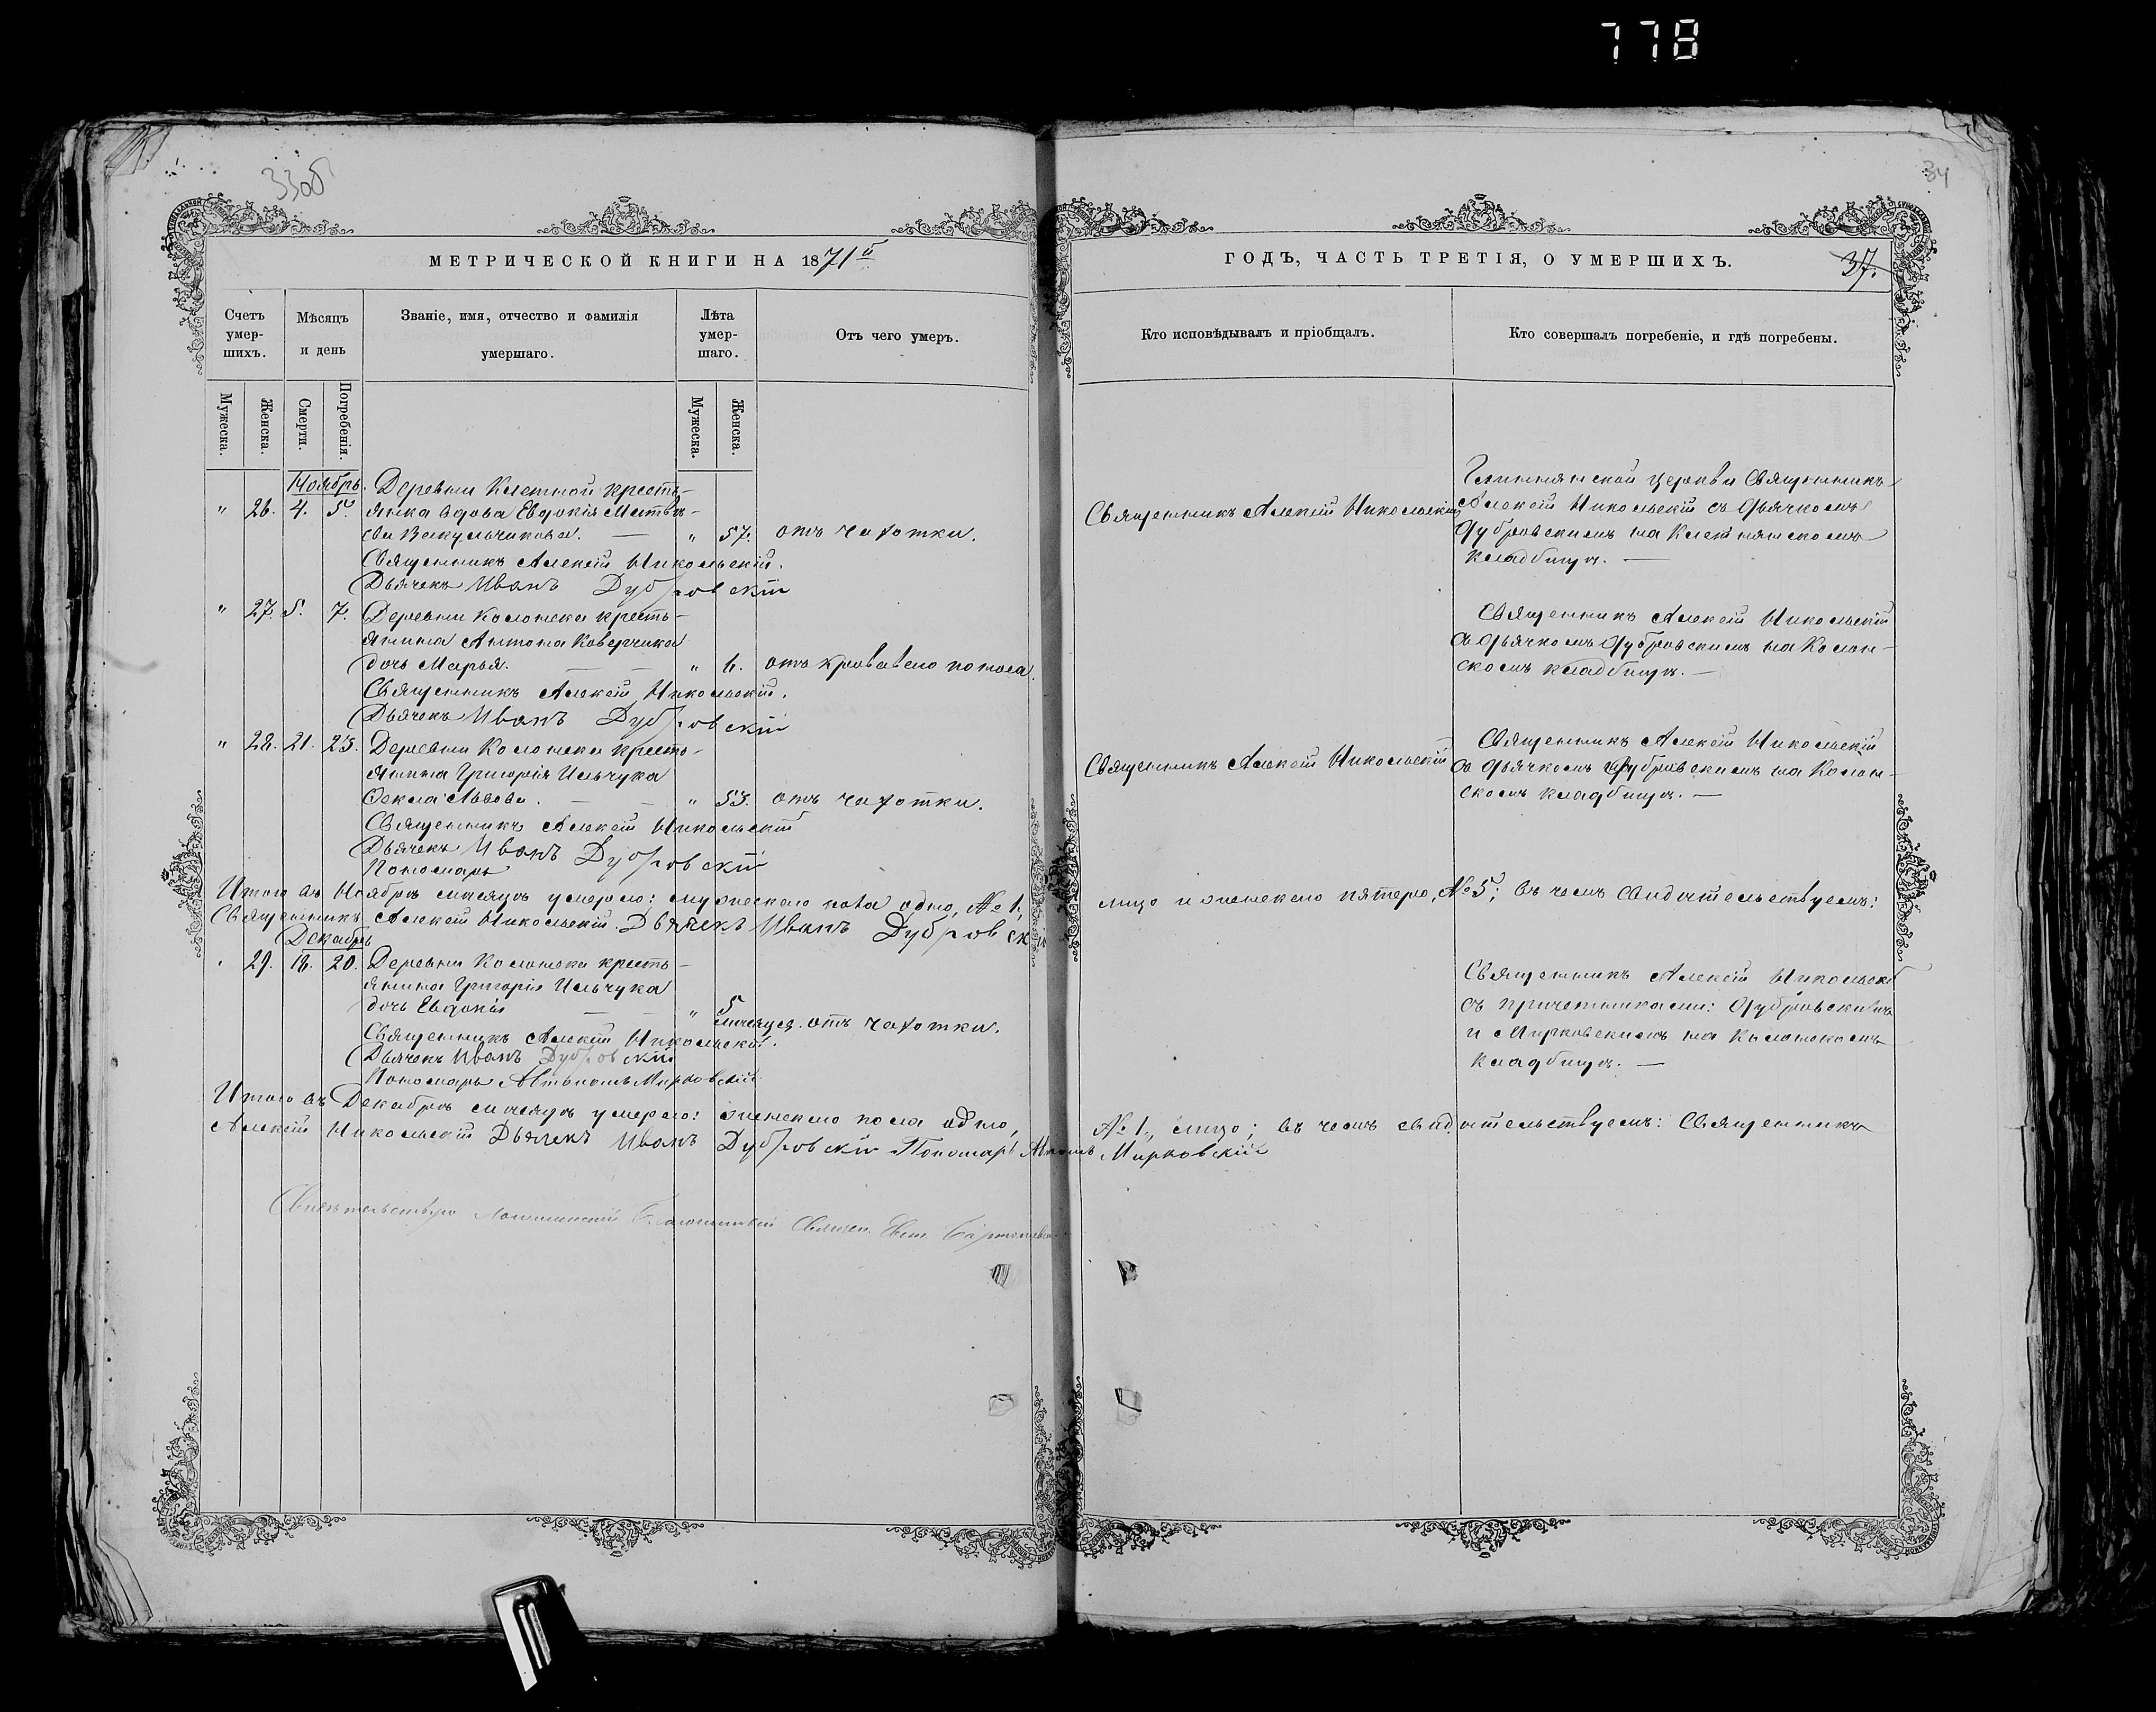 778
33об
34
МЕТРИЧЕСКОЙ КНИГИ НА 1871й
ГОДЪ, ЧАСТЬ ТРЕТІЯ, О УМЕРШИХЪ.
37.
Счетъ умер-шихъ.
Мѣсяцъ и день
Званіе, имя, отчество и фамилія умершаго.
Лѣта умер-шаго.
Отъ чего умеръ.
Кто исповѣдывалъ и пріобщалъ.
Кто совершалъ погребеніе, и гдѣ погребены.
Мужеска.
Женска.
Смерти.
Погребенія.
Мужеска.
Женска.
Ноябрь.
Деревни Клетной кресть-
" 26. 4. 5. янка вдова Евдокія Матвѣ-
ева Вакульчикова. — " 57. отъ чахотки.
Священникъ Алексій Никольскій.
Дьячекъ Иванъ Дубровскій
Священникъ Алексій Никольскій
священникъ
Алексій Никольскій съ дьячкомъ
Дубровскимъ на Клетнянскомъ
кладбищѣ. —
" 27. 5. 7. Деревни Колонска кресть-
янина Антона Коверчика
дочь Марья. — — " 6. отъ кроваваго поноса.
Священникъ Алексій Никольскій.
Дьячекъ Иванъ Дубровскій
Священникъ Алексій Никольскій
съ дьячкомъ Дубровскимъ на Колон-
скомъ кладбищѣ. —
" 28. 21. 23. Деревни Колонска кресть-
янина Григорія Ильчука
Ѳекла Львова. — — " 53. отъ чахотки.
Священникъ Алексій Никольскій
Дьячекъ Иванъ Дубровскій
Пономарь
Священникъ Алексій Никольскій
Священникъ Алексій Никольскій
съ дьячкомъ Дубровскимъ на Колон-
скомъ кладбищѣ. —
Итого въ Ноябрѣ мѣсяцѣ умерло: мужескаго пола одно, № 1, лицо и женскаго пятеро, № 5; въ чемъ свидѣтельствуемъ:
Священникъ Алексій Никольскій Дьячекъ Иванъ Дубровскій
Декабрь
29. 18. 20. Деревни Колонска кресть-
янина Григорія Ильчука
дочь Евдокія — — " 5 мѣсяцевъ. отъ чахотки.
Священникъ Алексій Никольскій.
Дьячекъ Иванъ Дубровскій
Пономарь Мирковскій
Священникъ Алексій Никольскій
съ причетниками: Дубровскимъ
и Мирковскимъ на Колонскомъ
кладбищѣ. —
Итого въ Декабрѣ мѣсяцѣ умерло: женскаго пола одно, № 1, лицо; въ чемъ свидѣтельствуемъ: Священникъ
Алексій Никольскій Дьячекъ Иванъ Дубровскій Пономарь Мирковскій